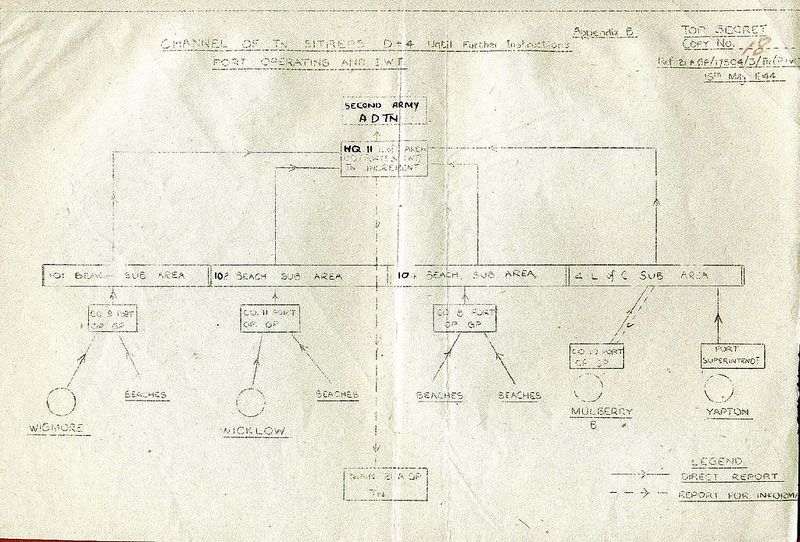 Appendix B
TOP SECRET
COPY No. 18
Ref: 21 A GP/17504/3/TN(PIW
15th May 1944
CHANNEL OF TN SITREPS D+4 Until Further Instructions
PORT OPERATING AND I.W.T.
SECOND ARMY
ADTN
HQ 11 L of C AREA
TN INCREMENT
101 BEACH SUB AREA
102 BEACH SUB AREA
104 BEACH SUB AREA
4 L of C SUB AREA
CO. 9 PORT
OP. GP
CO. 11 PORT
OP. GP
CO. 8 PORT
OP. GP
CO. 10 PORT
OP. GP
PORT
SUPERINTENDT
WIGMORE
BEACHES
WICKLOW
BEACHES
BEACHES
BEACHES
MULBERRY
B
YAPTON
MAIN 21 A GP
TN
LEGEND
DIRECT REPORT
REPORT FOR INFORMA